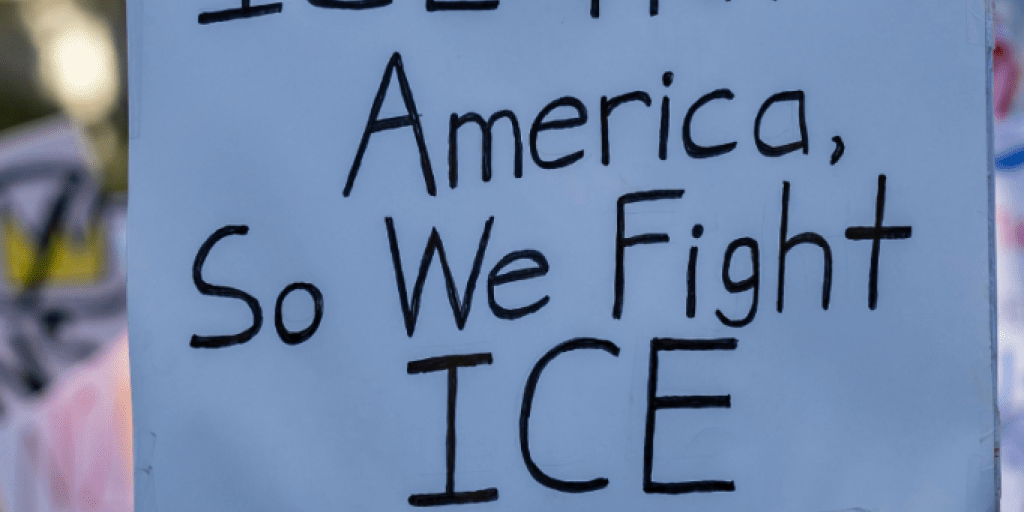 America,
So We Fight
ICE